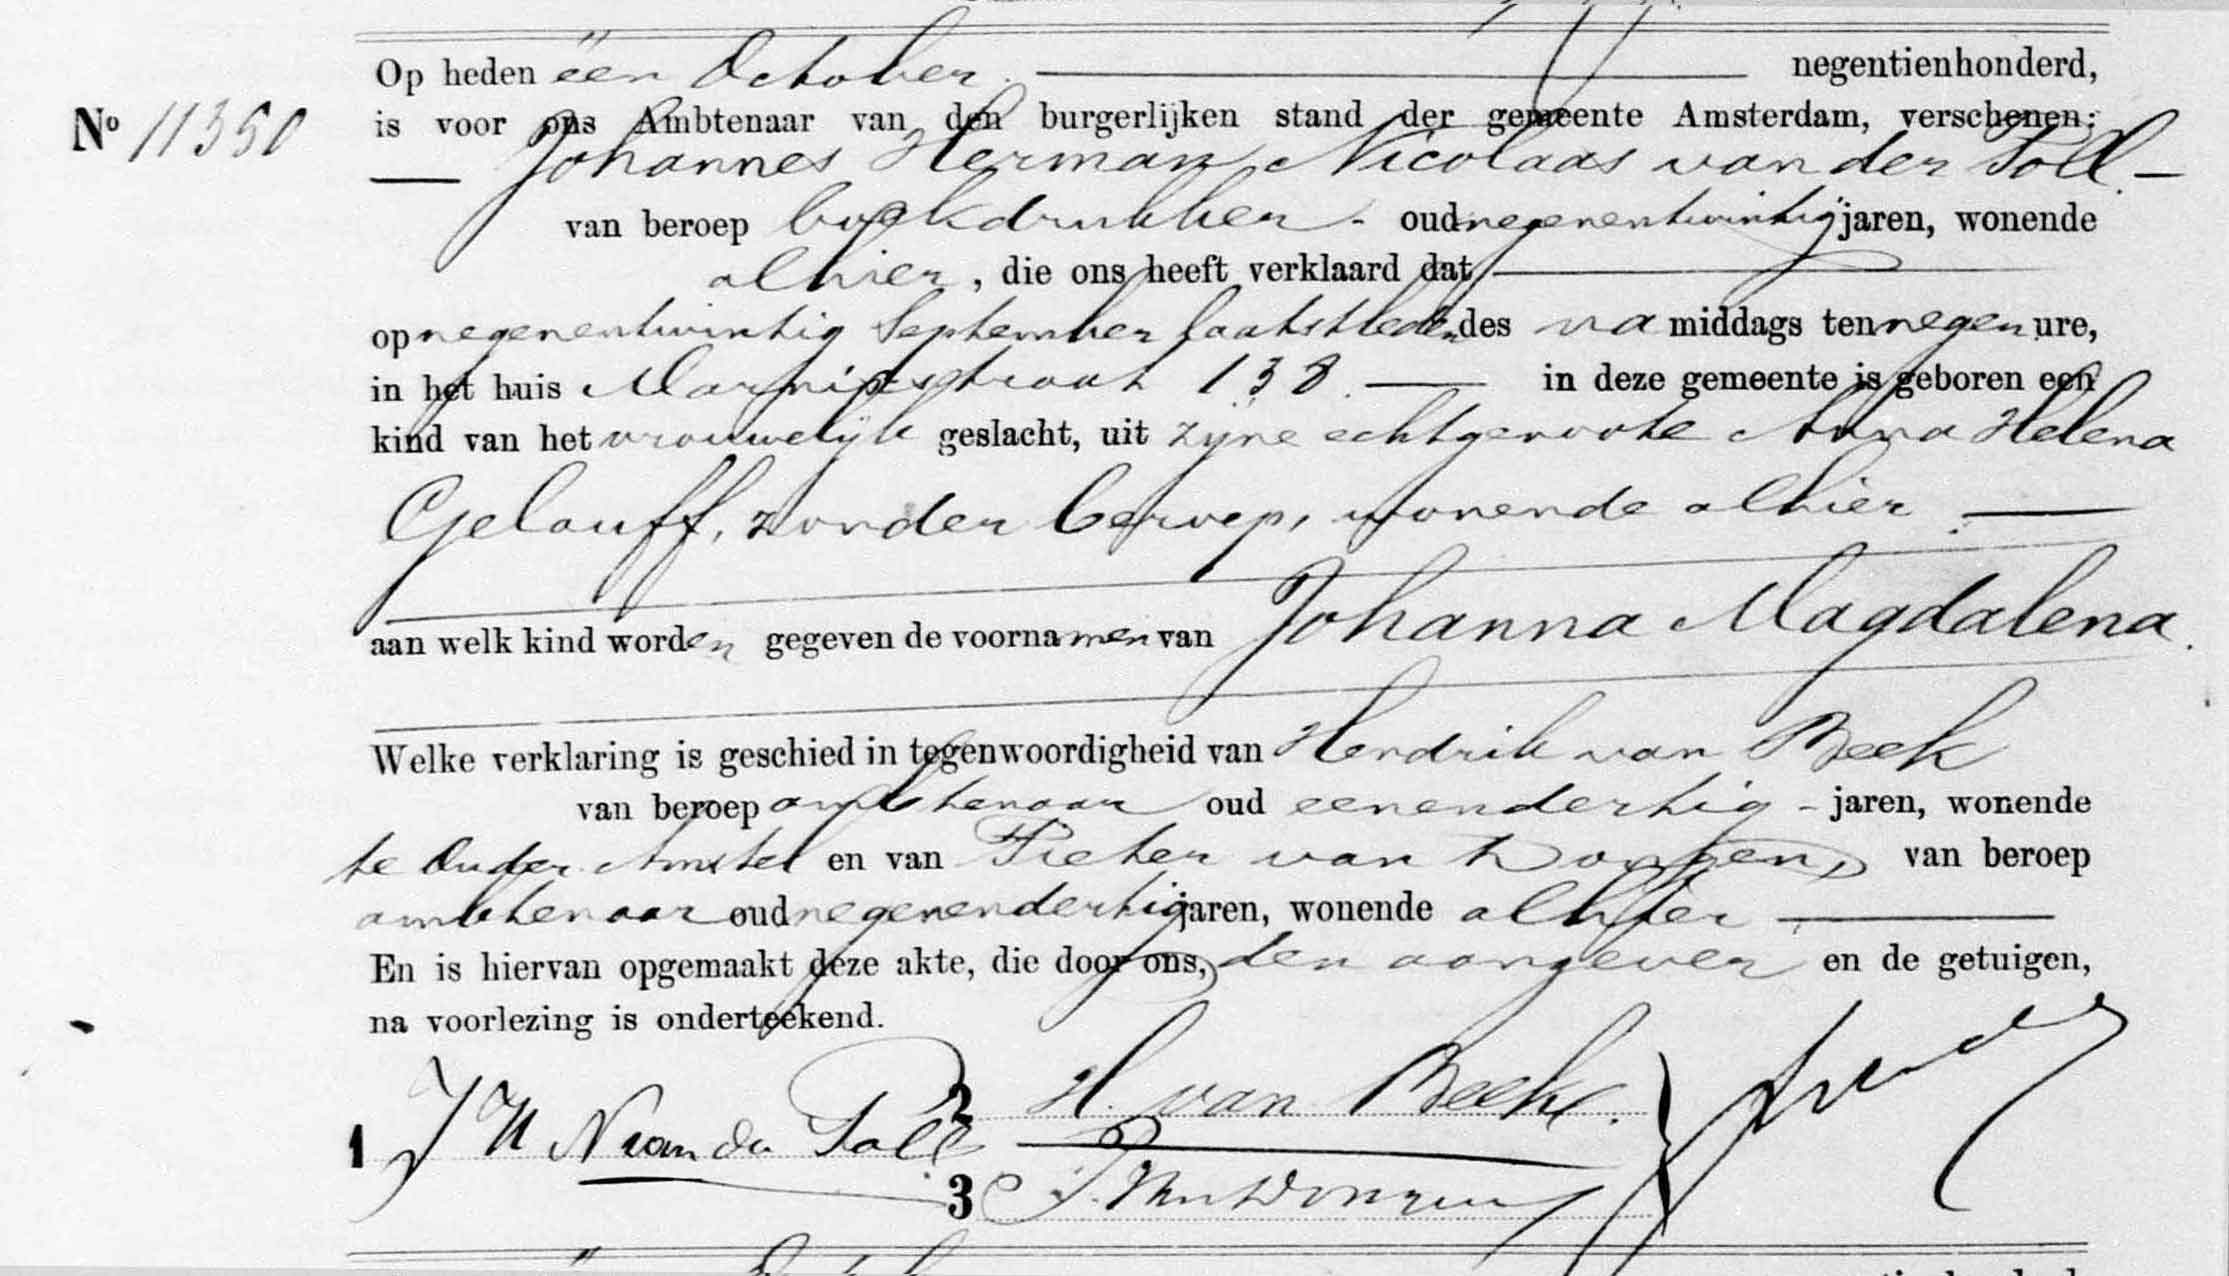 Op heden één October. negentienhonderd,
No 11350 is voor ons Ambtenaar van den burgerlijken stand der gemeente Amsterdam, verschenen:
Johannes Herman Nicolaas van der Poll.
van beroep boekdrukker oud negenentwintig jaren, wonende
alhier, die ons heeft verklaard dat
op negenentwintig September laatstleden des na middags ten negen ure,
in het huis Marnixstraat 138. in deze gemeente is geboren een
kind van het vrouwelijk geslacht, uit zijne echtgenoote Anna Helena
Gelouff, zonder beroep, wonende alhier.
aan welk kind worden gegeven de voornamen van Johanna Magdalena.
Welke verklaring is geschied in tegenwoordigheid van Hendrik van Beek
van beroep ambtenaar oud eenendertig jaren, wonende
te Ouder Amstel en van Pieter van Dongen, van beroep
ambtenaar oud negenendertig jaren, wonende alhier
En is hiervan opgemaakt deze akte, die door ons, den aangever en de getuigen,
na voorlezing is onderteekend.
2 H. van Beek.
1 J H N van der Poll
3 P. van Dongen